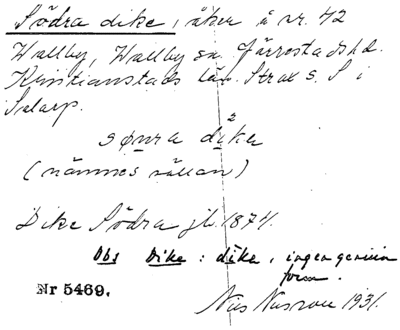 Södra dike, åker å nr. 42
Wallby, Wallby sn. Järrestads hd.
Kristianstads län. Strax S. S i
Selarp.
sønra dika
(nämnes sällan)
Dike Södra jb. 1874.
Obs Dike : dika, ingen genuin
form.
Nr 5469.
Nils 1931.